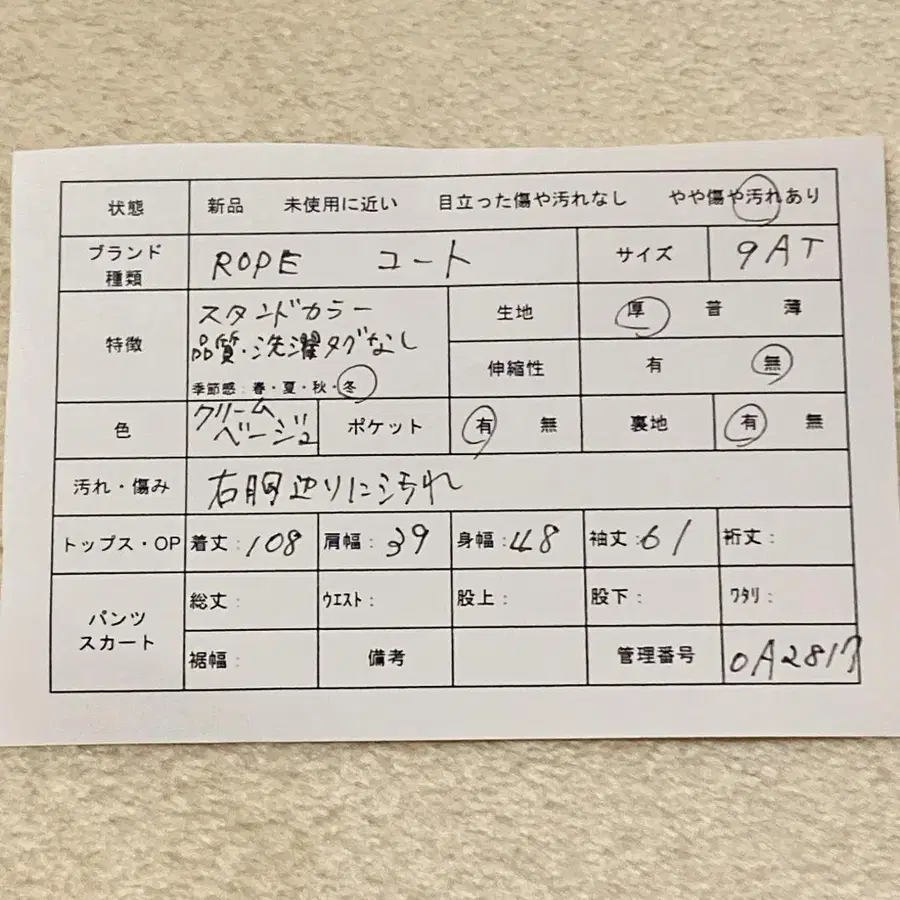 状態 新品 未使用に近い 目立った傷や汚れなし やや傷や汚れあり
ブランド種類 ROPE コート サイズ 9AT
特徴 スタンドカラー
品質・洗濯タグなし
季節感:春・夏・秋・冬
生地 厚 普 薄
伸縮性 有 無
色 クリームベージュ ポケット 有 無 裏地 有 無
汚れ・傷み 右胸辺りに汚れ
トップス・OP 着丈:108 肩幅:39 身幅:48 袖丈:61 裄丈:
パンツ
スカート
総丈: ウエスト: 股上: 股下: ワタリ:
裾幅: 備考 管理番号 0A2817